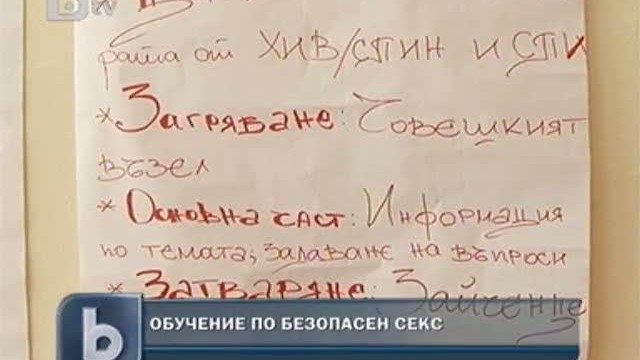 bTV
рата от ХИВ/СПИН и СПИ
* Загряване: Човешкият
възел
* Основна част: Информация
по темата; задаване на въпроси
* Затваряне: Зайчение
b ОБУЧЕНИЕ ПО БЕЗОПАСЕН СЕКС